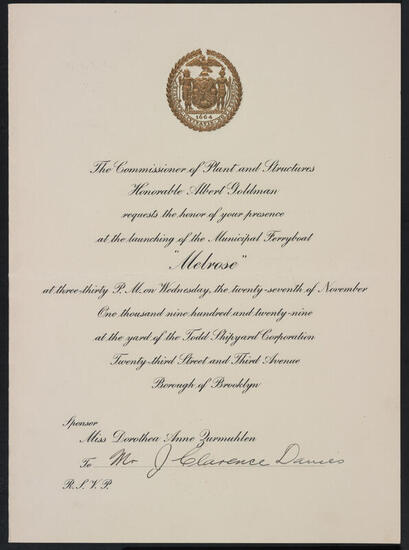 1664
The Commissioner of Plant and Structures
Honorable Albert Goldman
requests the honor of your presence
at the launching of the Municipal Ferryboat
"Melrose"
at three-thirty P. M. on Wednesday, the twenty-seventh of November
One thousand nine hundred and twenty-nine
at the yard of the Todd Shipyard Corporation
Twenty-third Street and Third Avenue
Borough of Brooklyn
Sponsor
Miss Dorothea Anne Zurmuhlen
To Mr J Clarence Davies
R. S. V. P.